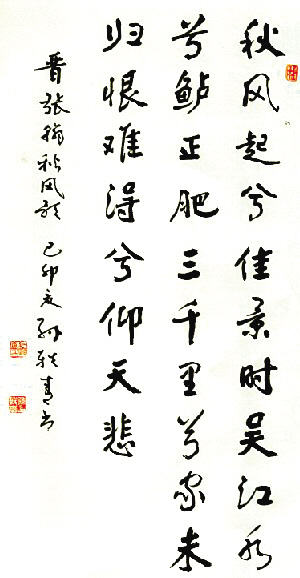 秋风起兮佳景时吴江水
兮鲈正肥三千里兮家未
归恨难得兮仰天悲
晋张翰秋风歌 己卯夏孙轶青书